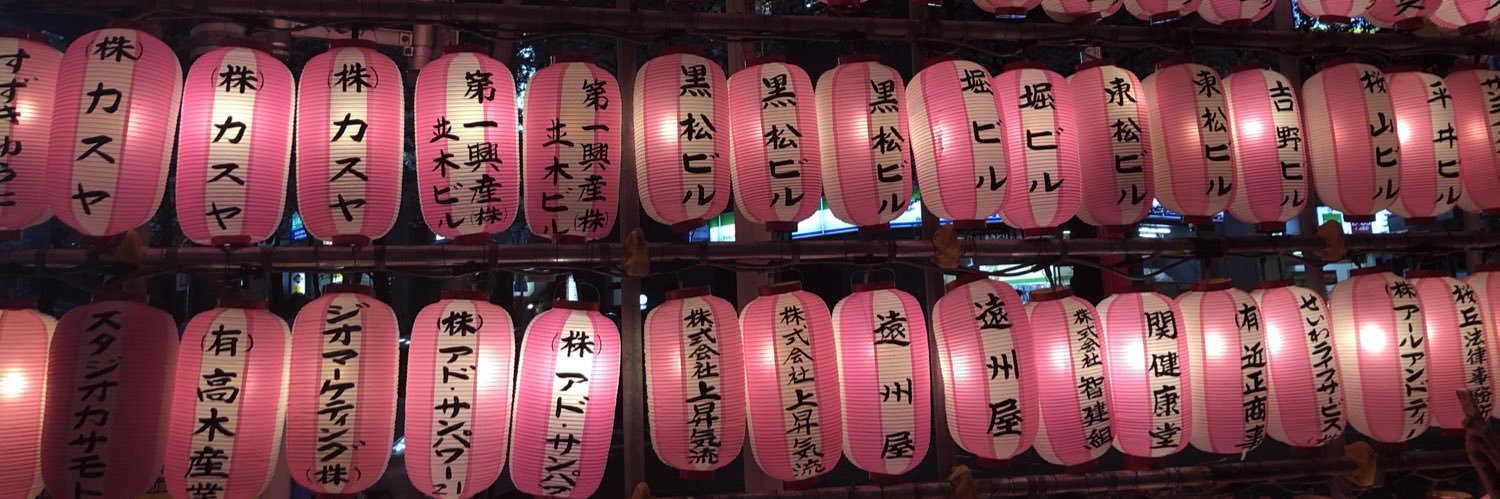 (株)カスヤ
(株)カスヤ
(株)カスヤ
第一興産(株)
並木ビル
第一興産(株)
並木ビル
黒松ビル
黒松ビル
黒松ビル
堀ビル
堀ビル
東松ビル
東松ビル
吉野ビル
桜山ビル
平井ビル
スタジオカサモト
(有)高木産業
ジオマーケティング(株)
(株)アド・サンパワー
(株)アド・サンパ
株式会社上昇気流
株式会社上昇気流
遠州屋
遠州屋
株式会社智建組
関健康堂
(有)近正商事
せいわライフサービス
(株)アールアンドティ
桜丘法律事務所